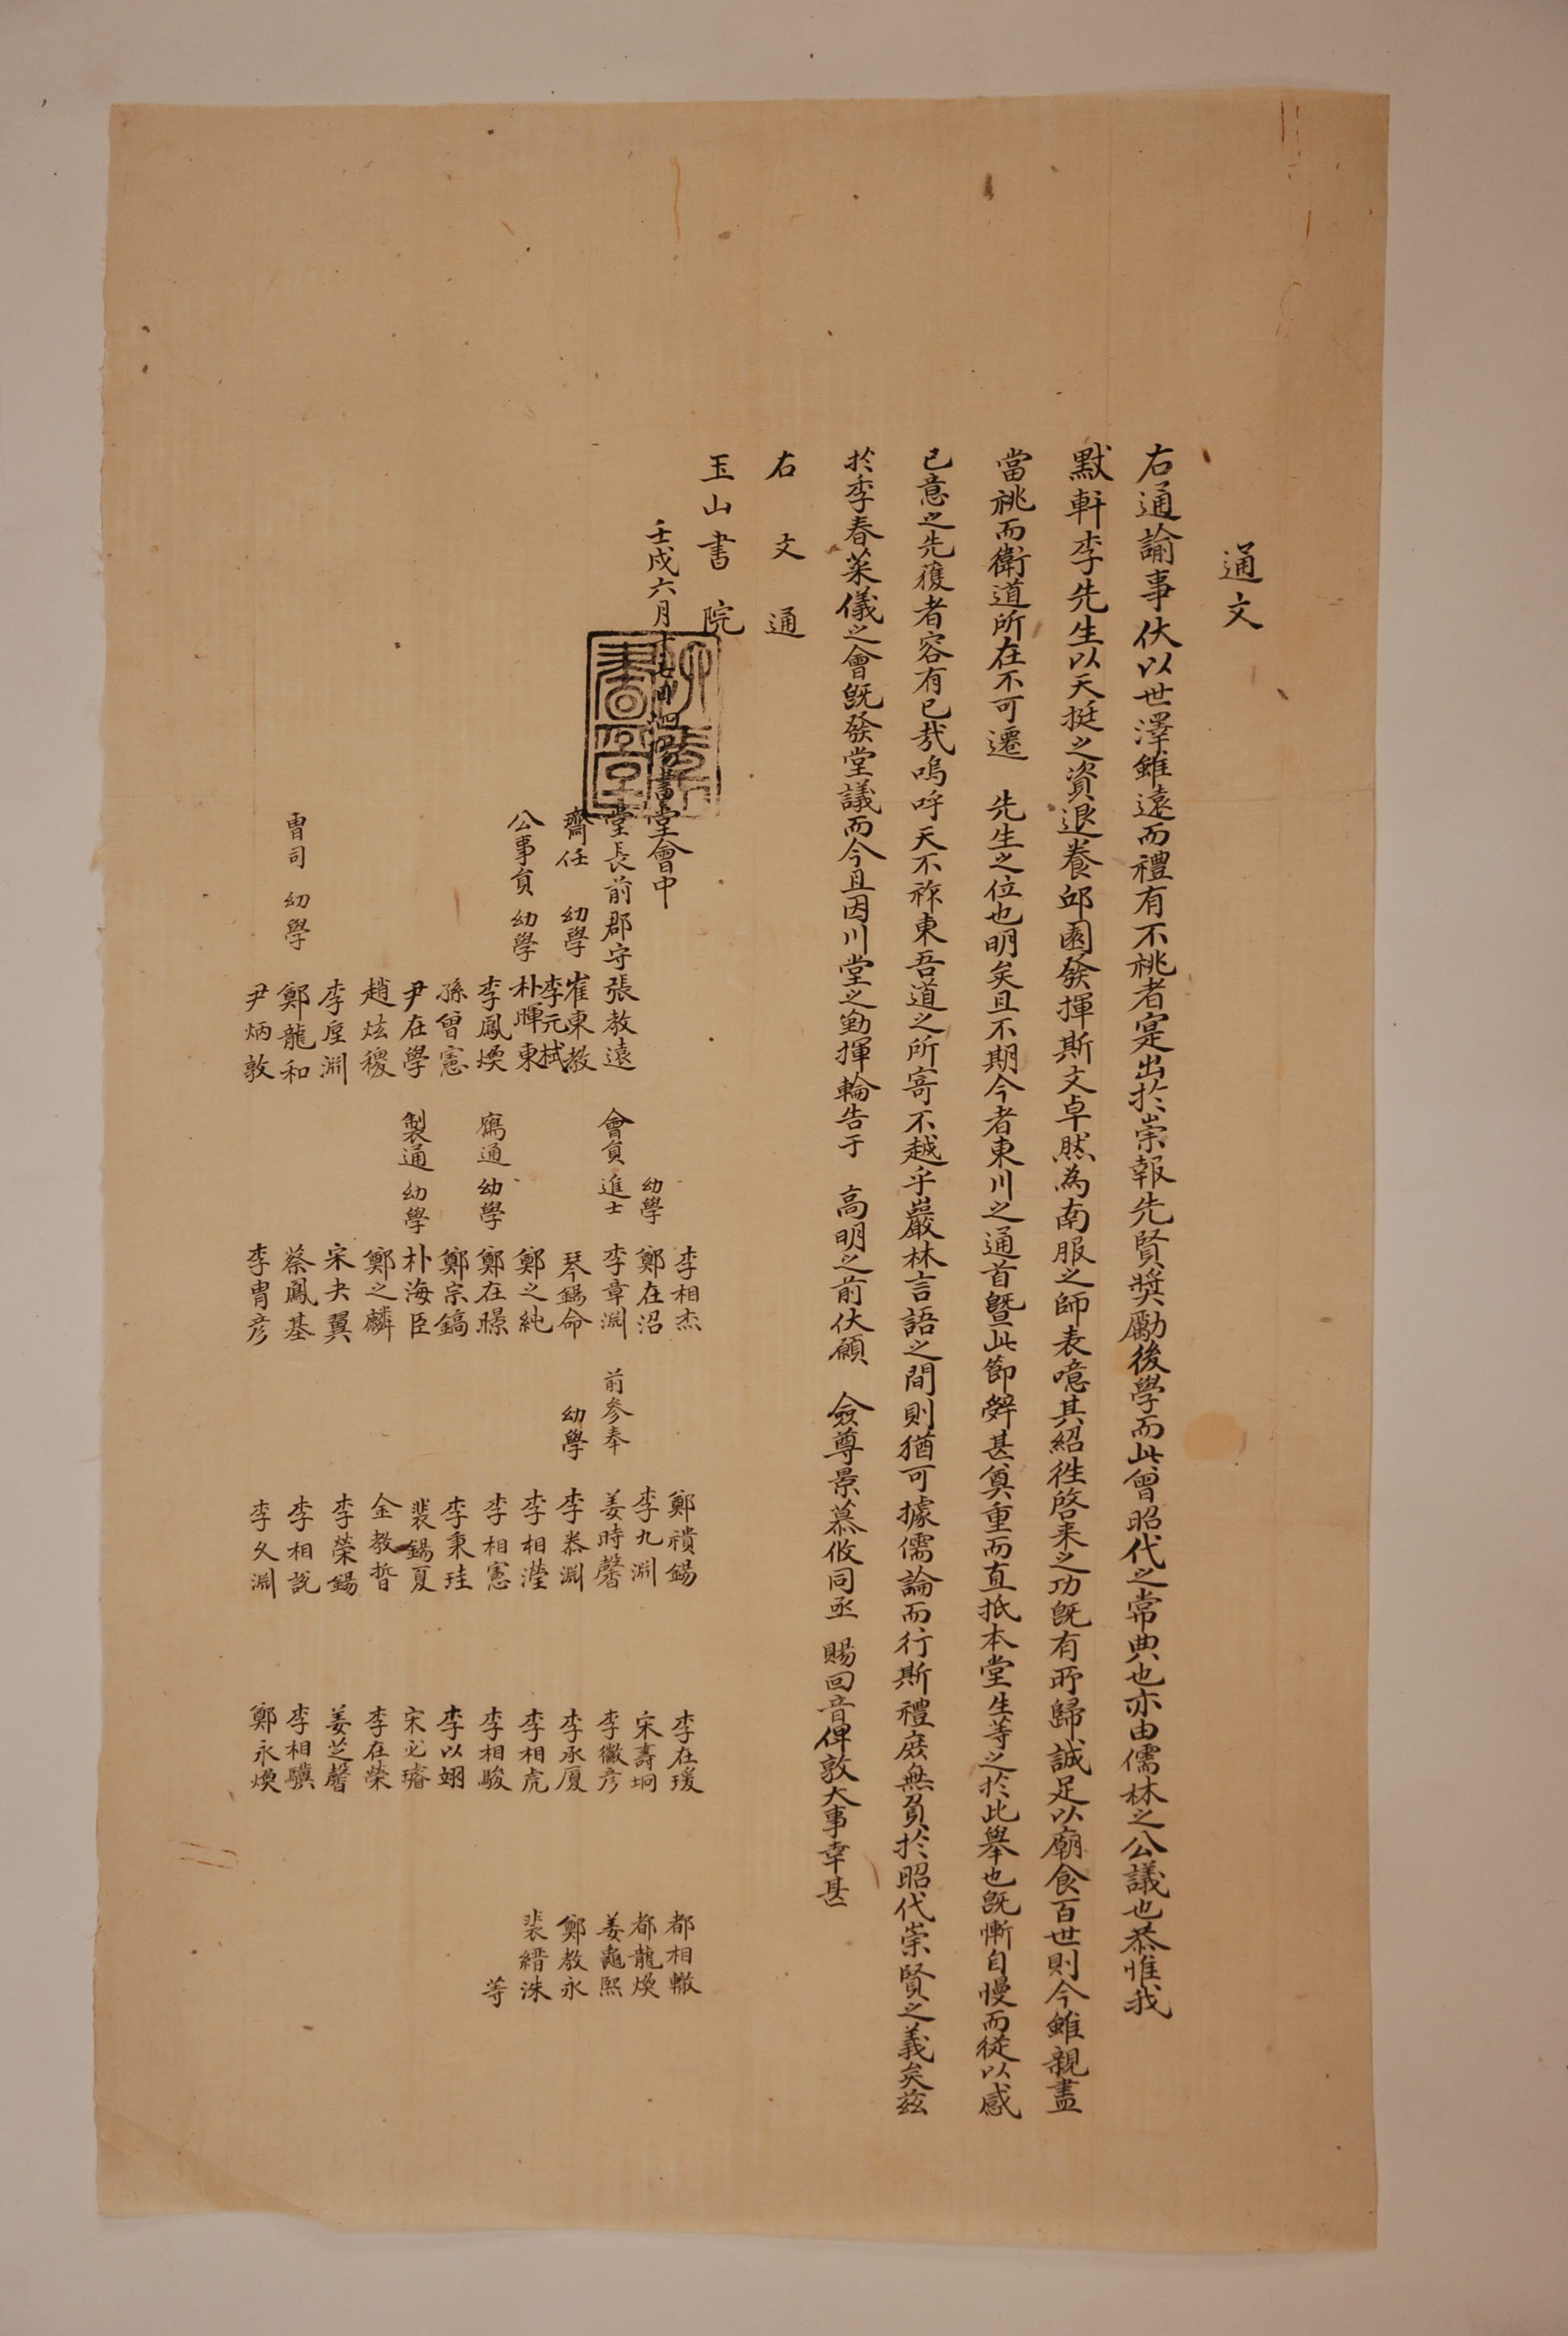 通文
右通諭事伏以世澤雖遠而禮有不祧者寔出於崇報先賢奬勵後學而此曾昭代之常典也亦由儒林之公議也恭惟我
默軒李先生以天挺之資退養邱園發揮斯文卓然為南服之師表噫其紹徃啓来之功旣有所歸誠足以廟食百世則今雖親盡
當祧而衛道所在不可遷 先生之位也明矣且不期今者東川之通首曁此節辭甚奠重而直抵本堂生等之於此舉也旣慚自慢而從以感
已意之先獲者容有已㢤嗚呼天不祚東吾道之所寄不越乎巖林言語之間則猶可據儒論而行斯禮庶無負於昭代崇賢之義矣玆
於季春菜儀之會旣發堂議而今且因川堂之勤揮輪告于 高明之前伏願 僉尊景慕攸同亟 賜回音俾敦大事幸甚
右文通
玉山書院
壬戌六月十七日 書堂會中
堂長前郡守張教遠
齋任 幼學 崔東教
李元栻
公事員 幼學 朴暉東
李鳳煥
孫曾憲
尹在學
趙炫稷
李垕淵
曺司 幼學 鄭龍和
尹炳敦
李相杰
幼學 鄭在沼
會員 進士 李章淵
琴錫命
鄭之純
寫通 幼學 鄭在㬌
鄭宗鎬
製通 幼學 朴海臣
鄭之麟
宋夫翼
蔡鳳基
李冑彦
鄭禶錫
李九淵
前參奉 姜時馨
幼學 李泰淵
李相瀅
李相憲
李秉珪
裴錫夏
金教晢
李榮錫
李相說
李久淵
李在瑗
宋壽坰
李徽彦
李承厦
李相虎
李相駿
李以翊
宋必璿
李在榮
姜芝馨
李相驥
鄭永煥
都相轍
都龍煥
姜龜熙
鄭教永
裴縉洙
等